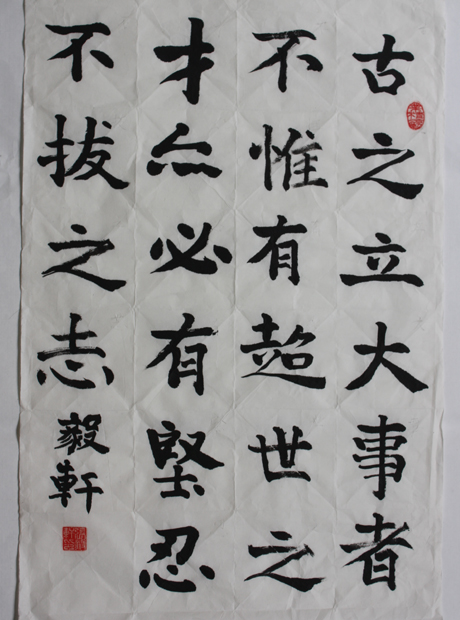 古之立大事者
不惟有超世之
才亦必有堅忍
不拔之志
毅軒